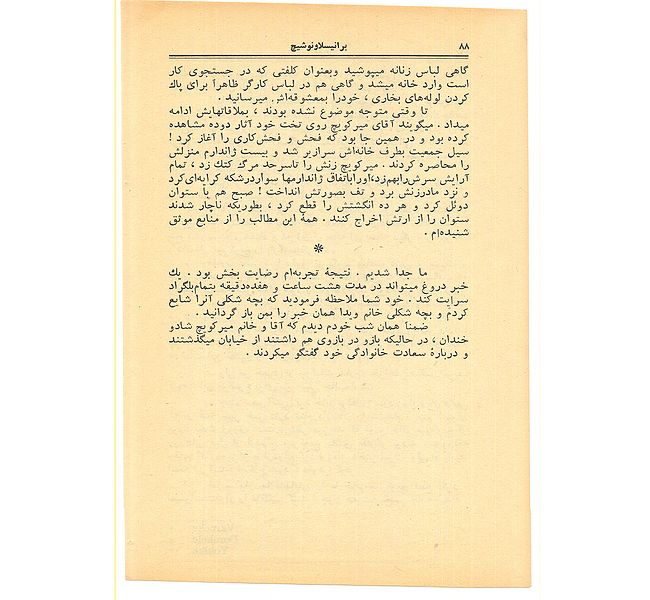 ۸۸
برانیسلاونوشیچ
گاهی لباس زنانه میپوشید وبعنوان کلفتی که در جستجوی کار
است وارد خانه میشد و گاهی هم در لباس کارگر ظاهراً برای پاك
کردن لوله‌های بخاری ، خودرا بمعشوقه‌اش میرسانید .
تا وقتی متوجه موضوع نشده بودند ، بملاقاتهایش ادامه
میداد . میگویند آقای میرکویچ روی تخت خود آثار دوده مشاهده
کرده بود و در همین جا بود که فحش و فحش‌کاری را آغاز کرد !
سیل جمعیت بطرف خانه‌اش سرازیر شد و بیست ژاندارم منزلش
را محاصره کردند . میرکویچ زنش را تاسرحد مرگ کتك زد ، تمام
آرایش سرش‌رابهم‌زد،اورا‌باتفاق ژاندارمها سواردرشکه کرایه‌ای‌کرد
و نزد مادرزنش برد و تف بصورتش انداخت ! صبح هم با ستوان
دوئل کرد و هر ده انگشتش را قطع کرد ، بطوریکه ناچار شدند
ستوان را از ارتش اخراج کنند . همهٔ این مطالب را از منابع موثق
شنیده‌ام .
*
ما جدا شدیم . نتیجهٔ تجربه‌ام رضایت بخش بود . یك
خبر دروغ میتواند در مدت هشت ساعت و هفده‌دقیقه بتمام‌بلگراد
سرایت کند . خود شما ملاحظه فرمودید که بچه شکلی آنرا شایع
کردم و بچه شکلی خانم ویدا همان خبر را بمن باز گردانید .
ضمناً همان شب خودم دیدم که آقا و خانم میرکویچ شادو
خندان ، در حالیکه بازو در بازوی هم داشتند از خیابان میگذشتند
و دربارهٔ سعادت خانوادگی خود گفتگو میکردند .